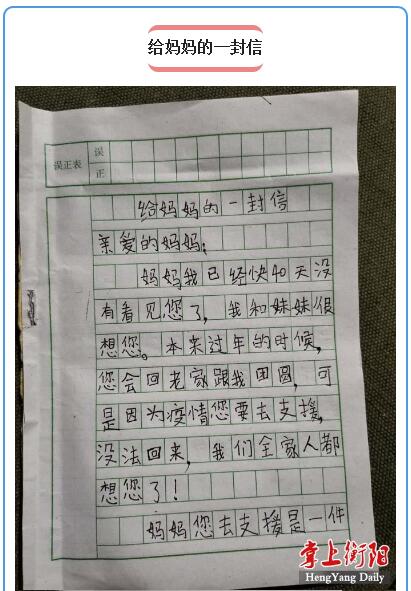 给妈妈的一封信
误正表
误
正
给妈妈的一封信
亲爱的妈妈：
妈妈我已经快40天没
有看见您了，我和妹妹很
想您。本来过年的时候，
您会回老家跟我团圆，可
是因为疫情您要去支援，
没法回来，我们全家人都
想您了！
妈妈您去支援是一件
掌上衡阳
HengYang Daily